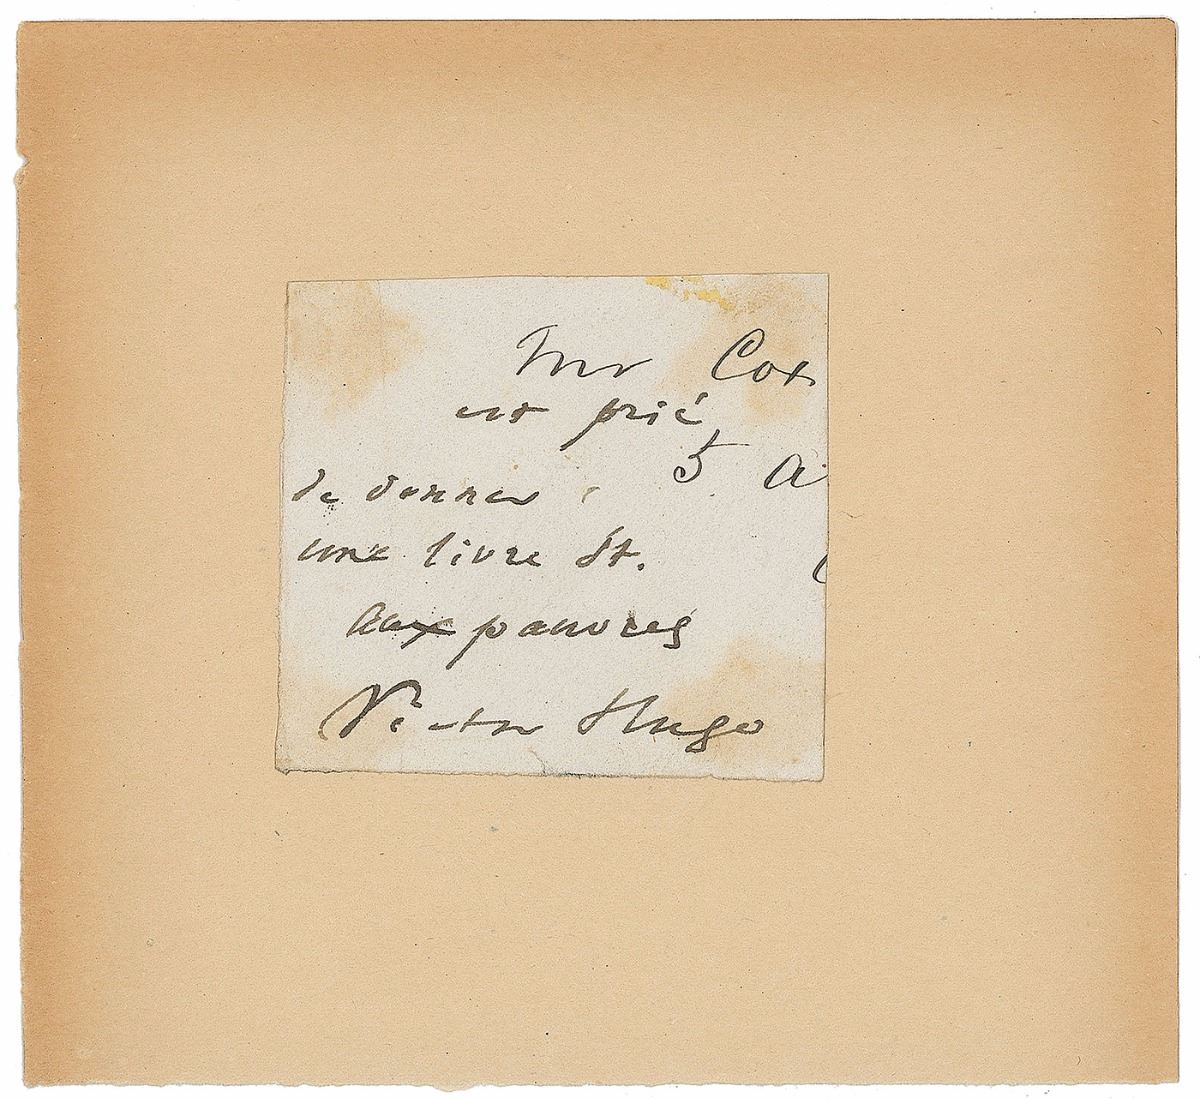 Mr Cox
est prié
5 a
de donner
une livre St.
aux pauvres
Victor Hugo